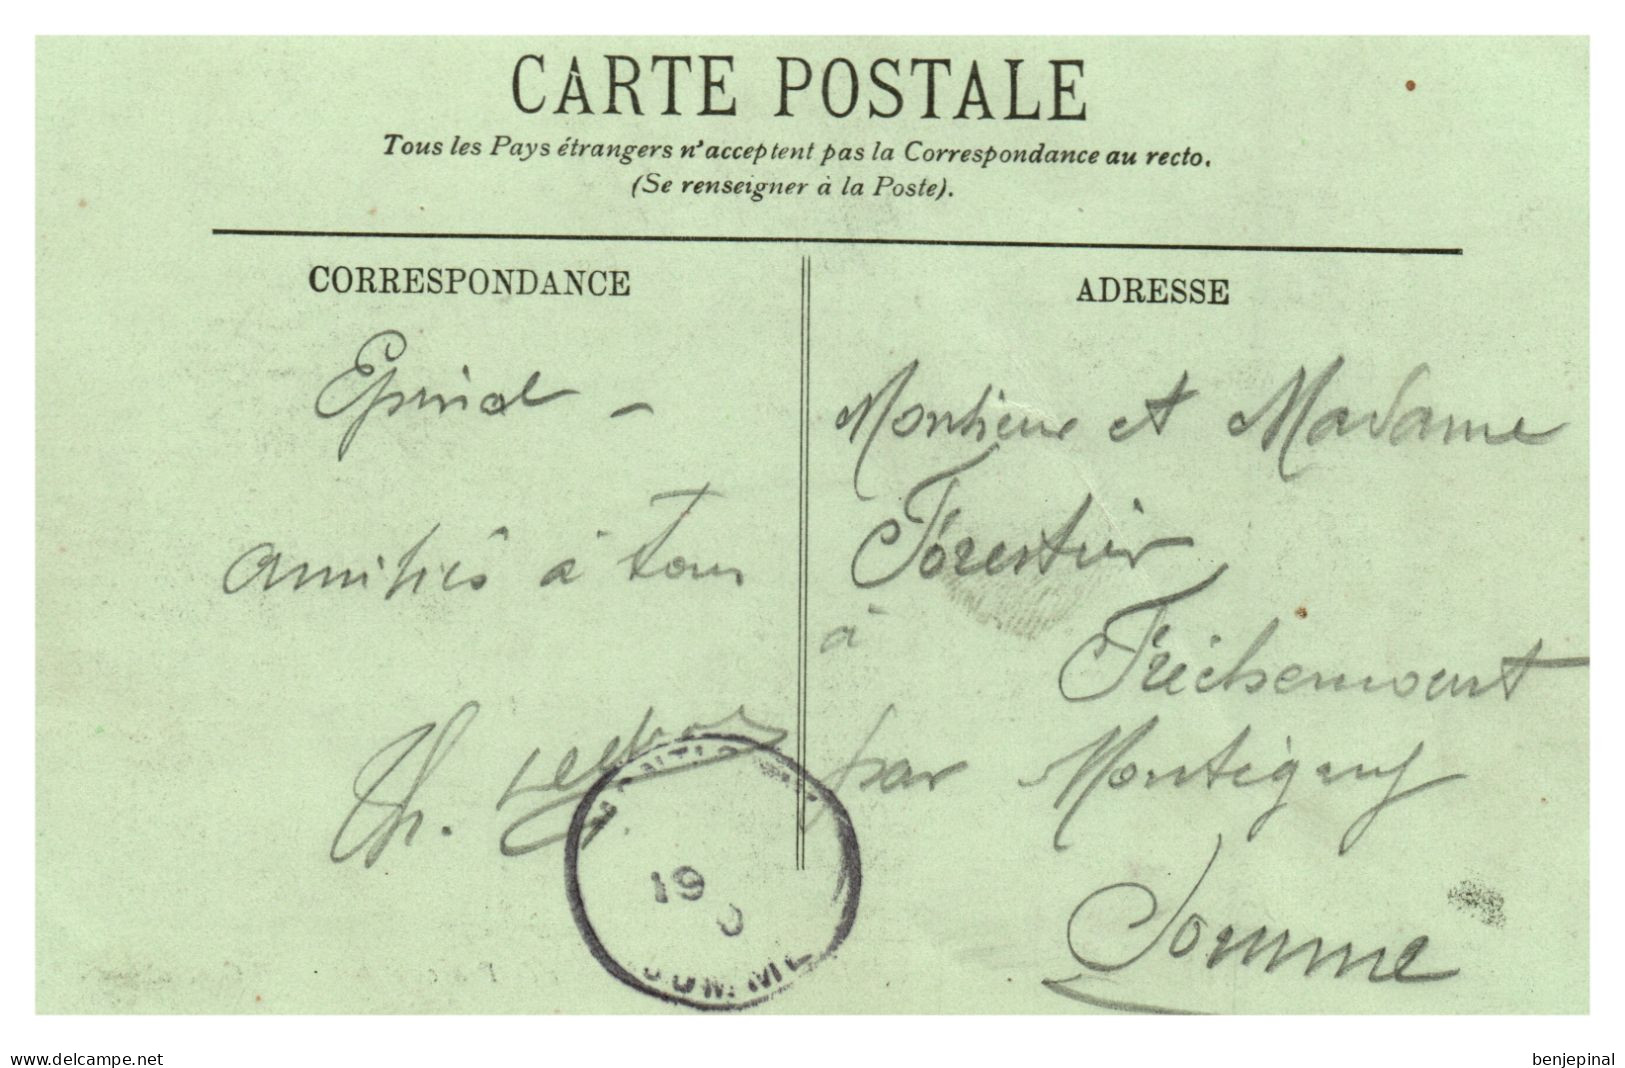 CARTE POSTALE
Tous les Pays étrangers n'acceptent pas la Correspondance au recto.
(Se renseigner à la Poste).
CORRESPONDANCE
Epinal -
amitiés à tous
Ch.
ADRESSE
Monsieur et Madame
Forestier
à
Fréchemcourt
par Montigny
Somme
19
SOMME
www.delcampe.net
benjepinal